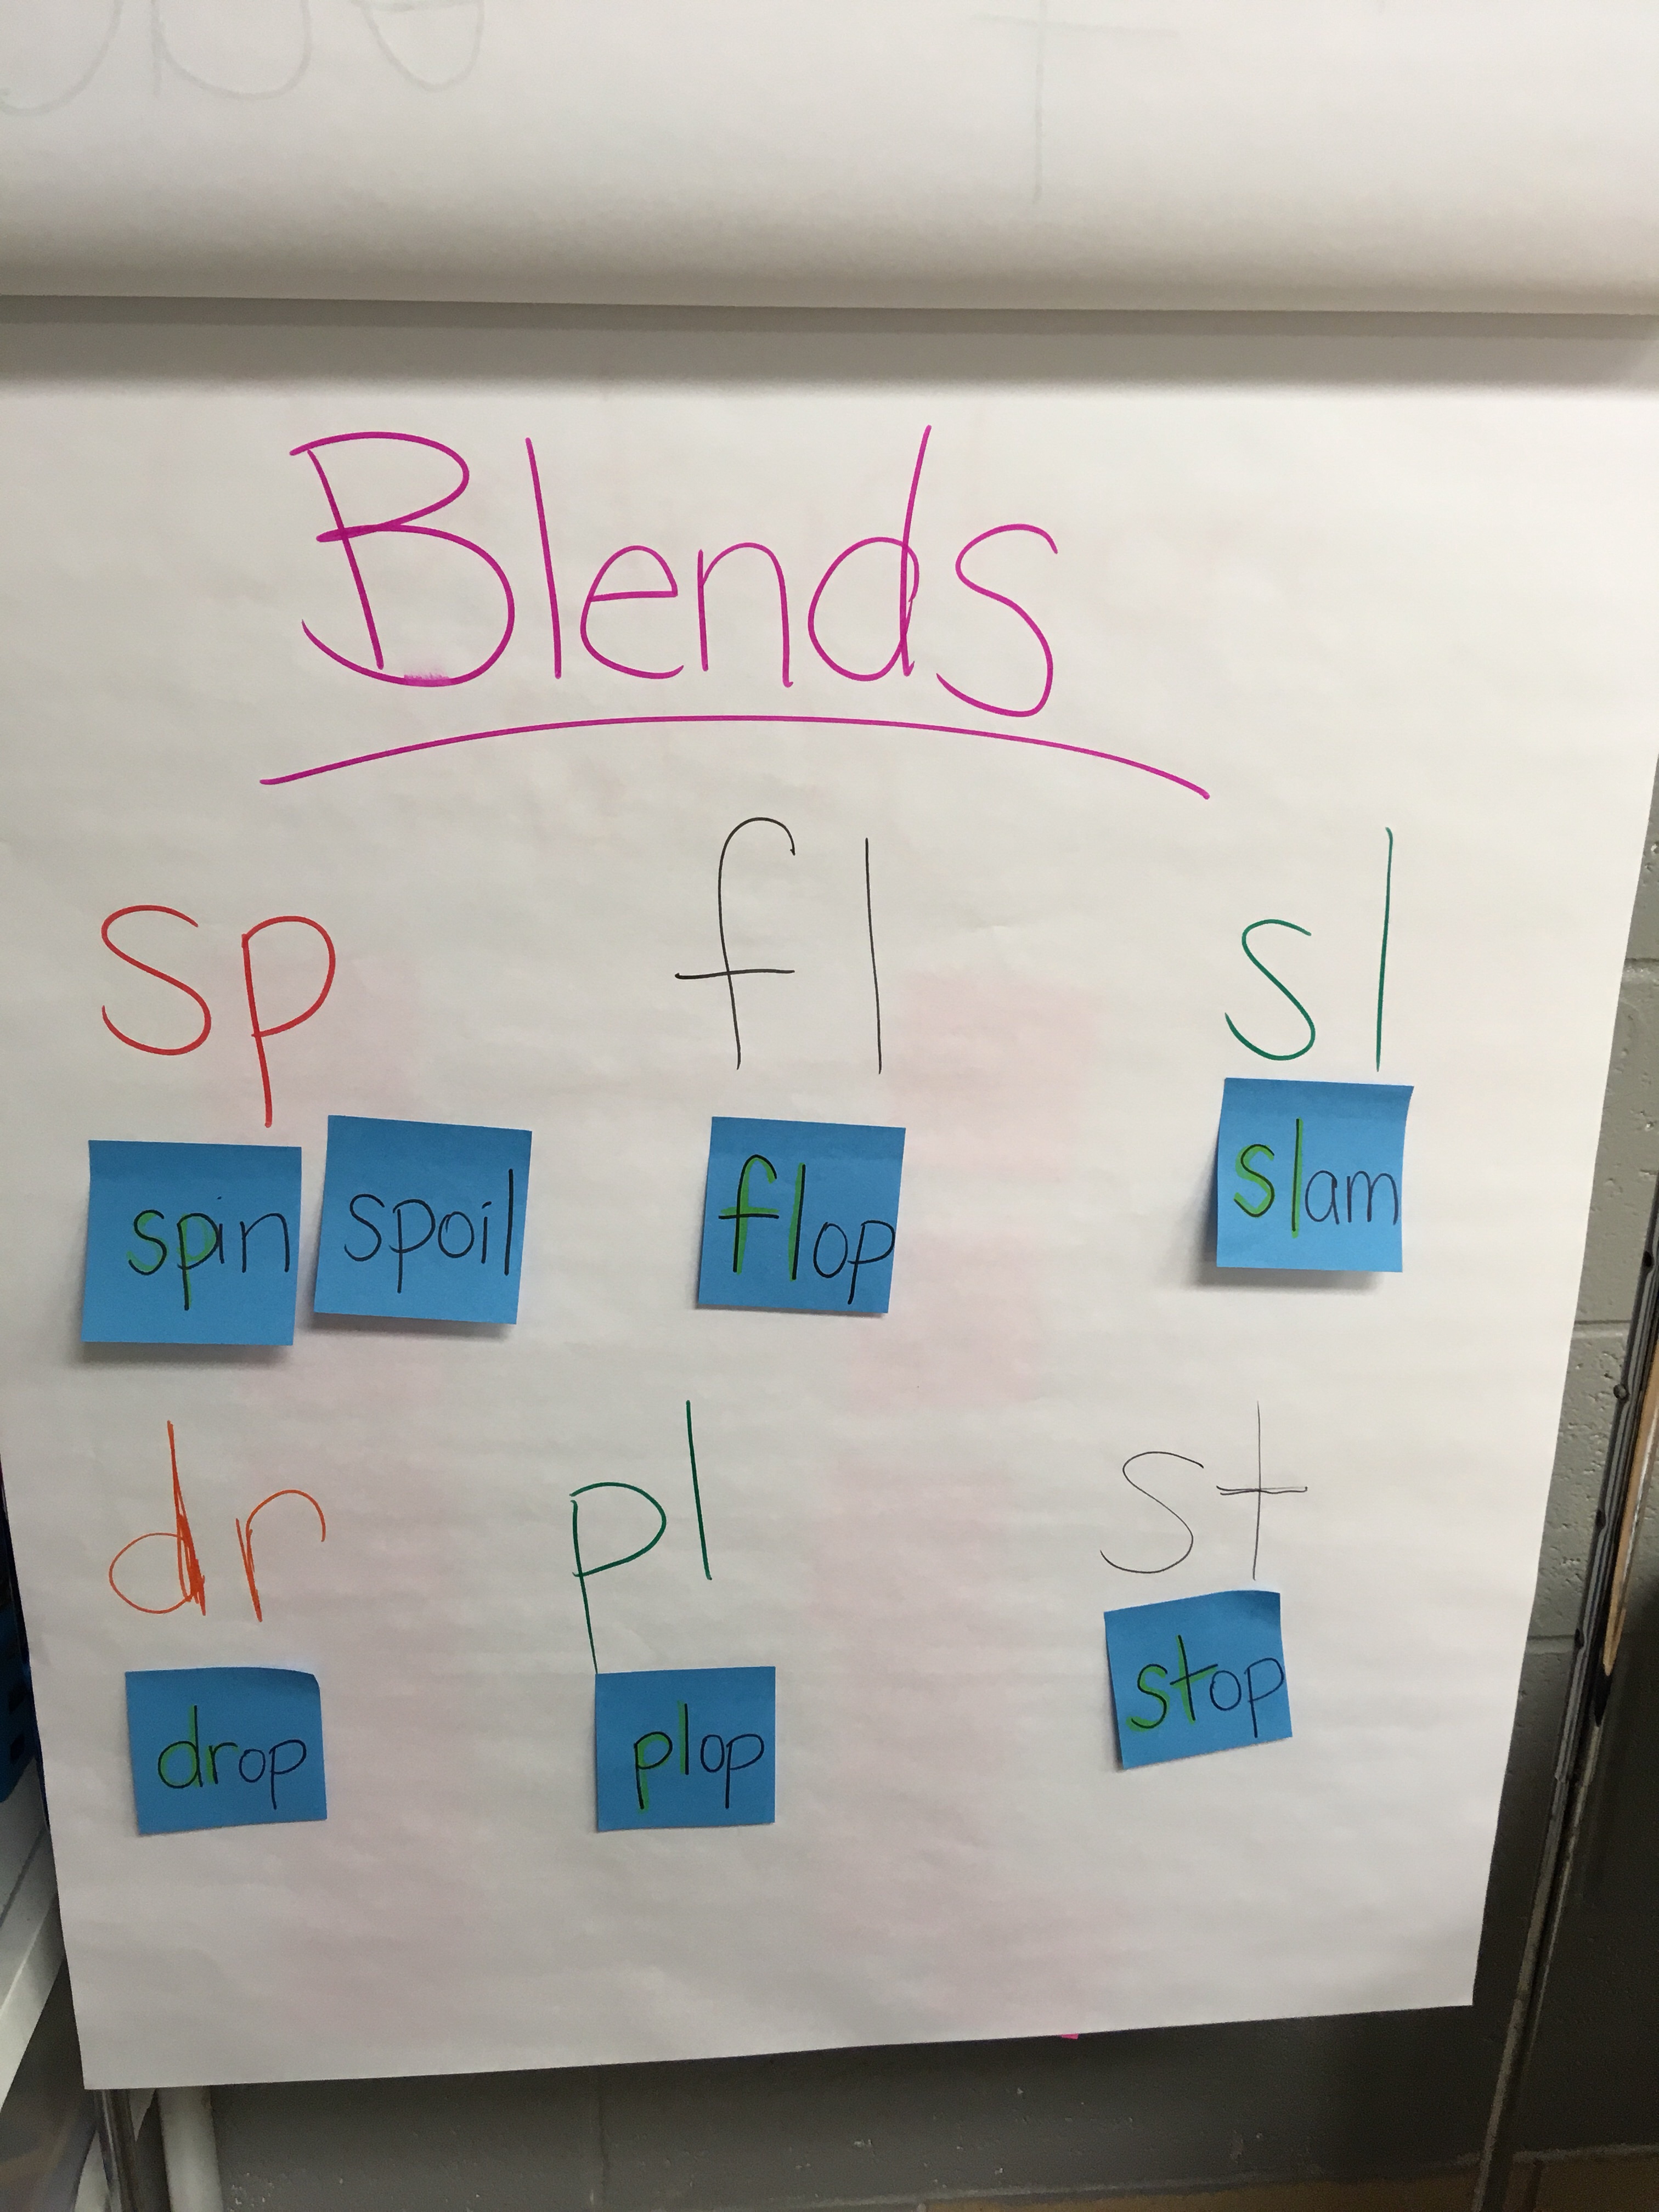 Blends
sp fl sl
spin spoil flop slam
dr pl st
drop plop stop